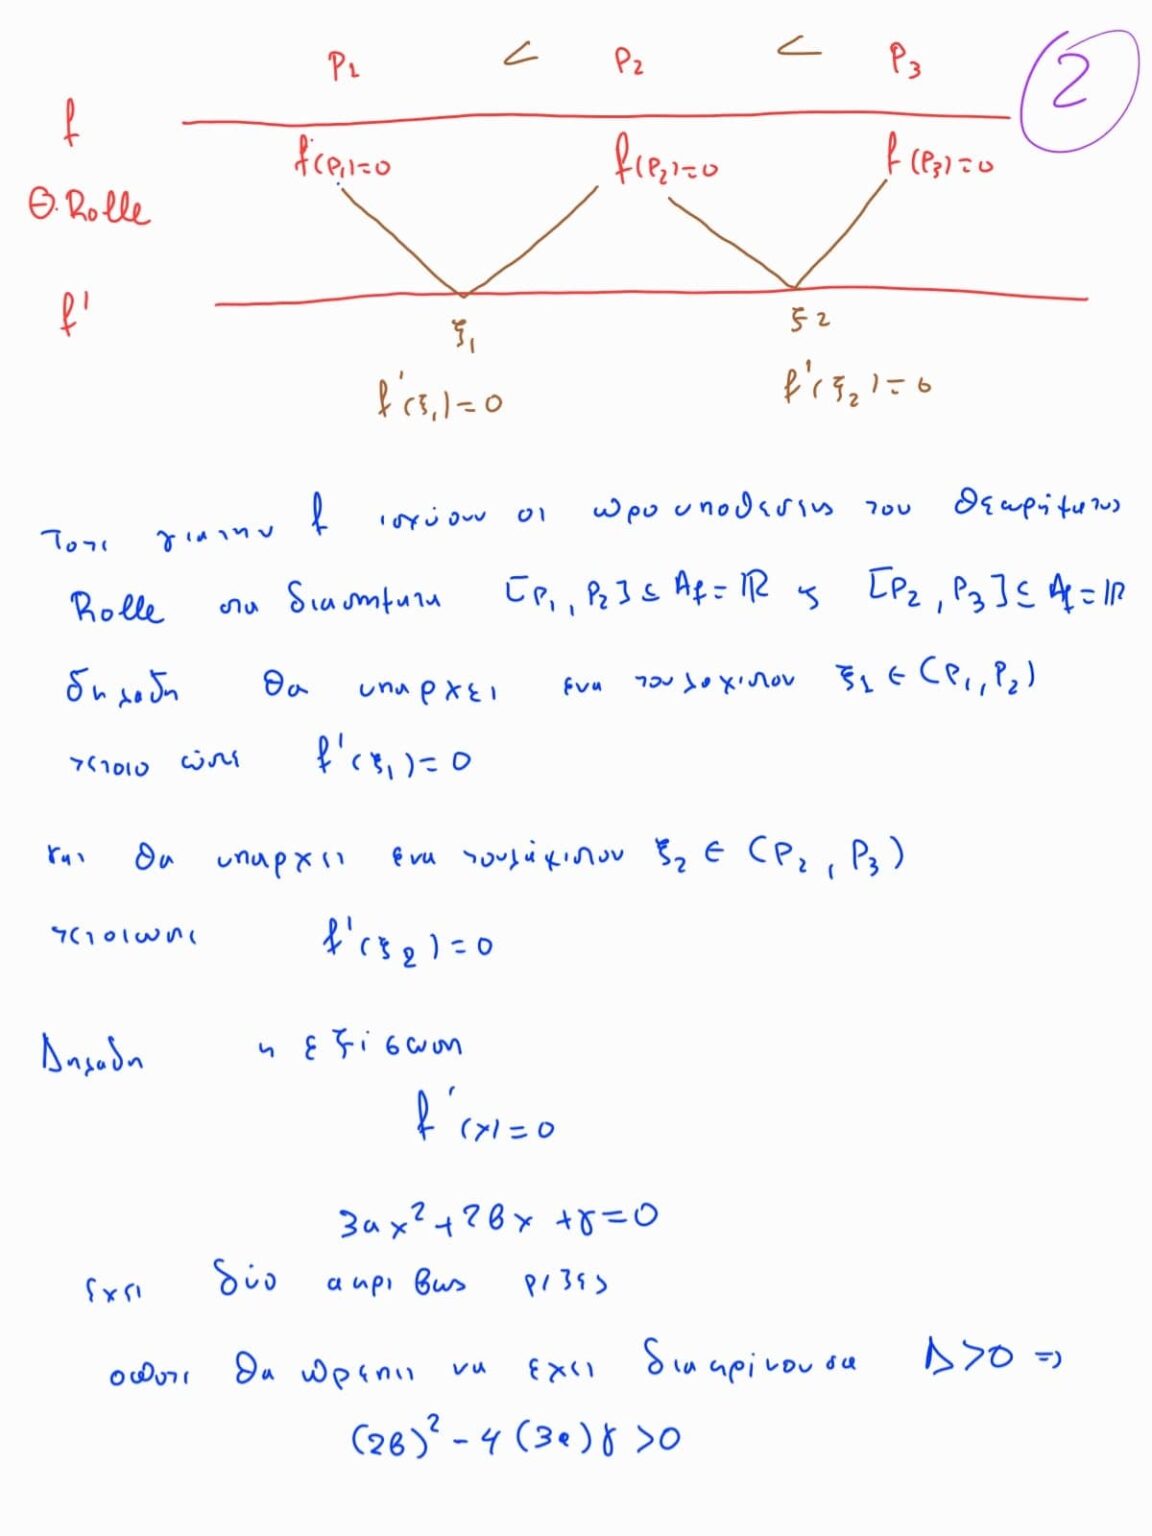 ρ₁ < ρ₂ < ρ₃
2
f
f(ρ₁)=0 f(ρ₂)=0 f(ρ₃)=0
Θ. Rolle
f'
ξ₁ ξ₂
f'(ξ₁)=0 f'(ξ₂)=0
Τοτε για την f ισχύουν οι προυποθεσεις του Θεωρήματος
Rolle στα διαστηματα [ρ₁, ρ₂] ⊆ A_f = ℝ ς [ρ₂, ρ₃] ⊆ A_f = ℝ
δηλαδη θα υπαρχει ενα τουλαχιστον ξ₁ ∈ (ρ₁, ρ₂)
τετοιο ώστε f'(ξ₁)=0
και θα υπαρχει ενα τουλάχιστον ξ₂ ∈ (ρ₂, ρ₃)
τετοιωστε f'(ξ₂)=0
Δηλαδη η εξίσωση
f'(x)=0
3αx²+2βx+γ=0
εχει δύο ακριβως ριζες
οποτε θα πρεπει να εχει διακρίνουσα Δ>0 ⇒
(2β)²-4(3α)γ>0